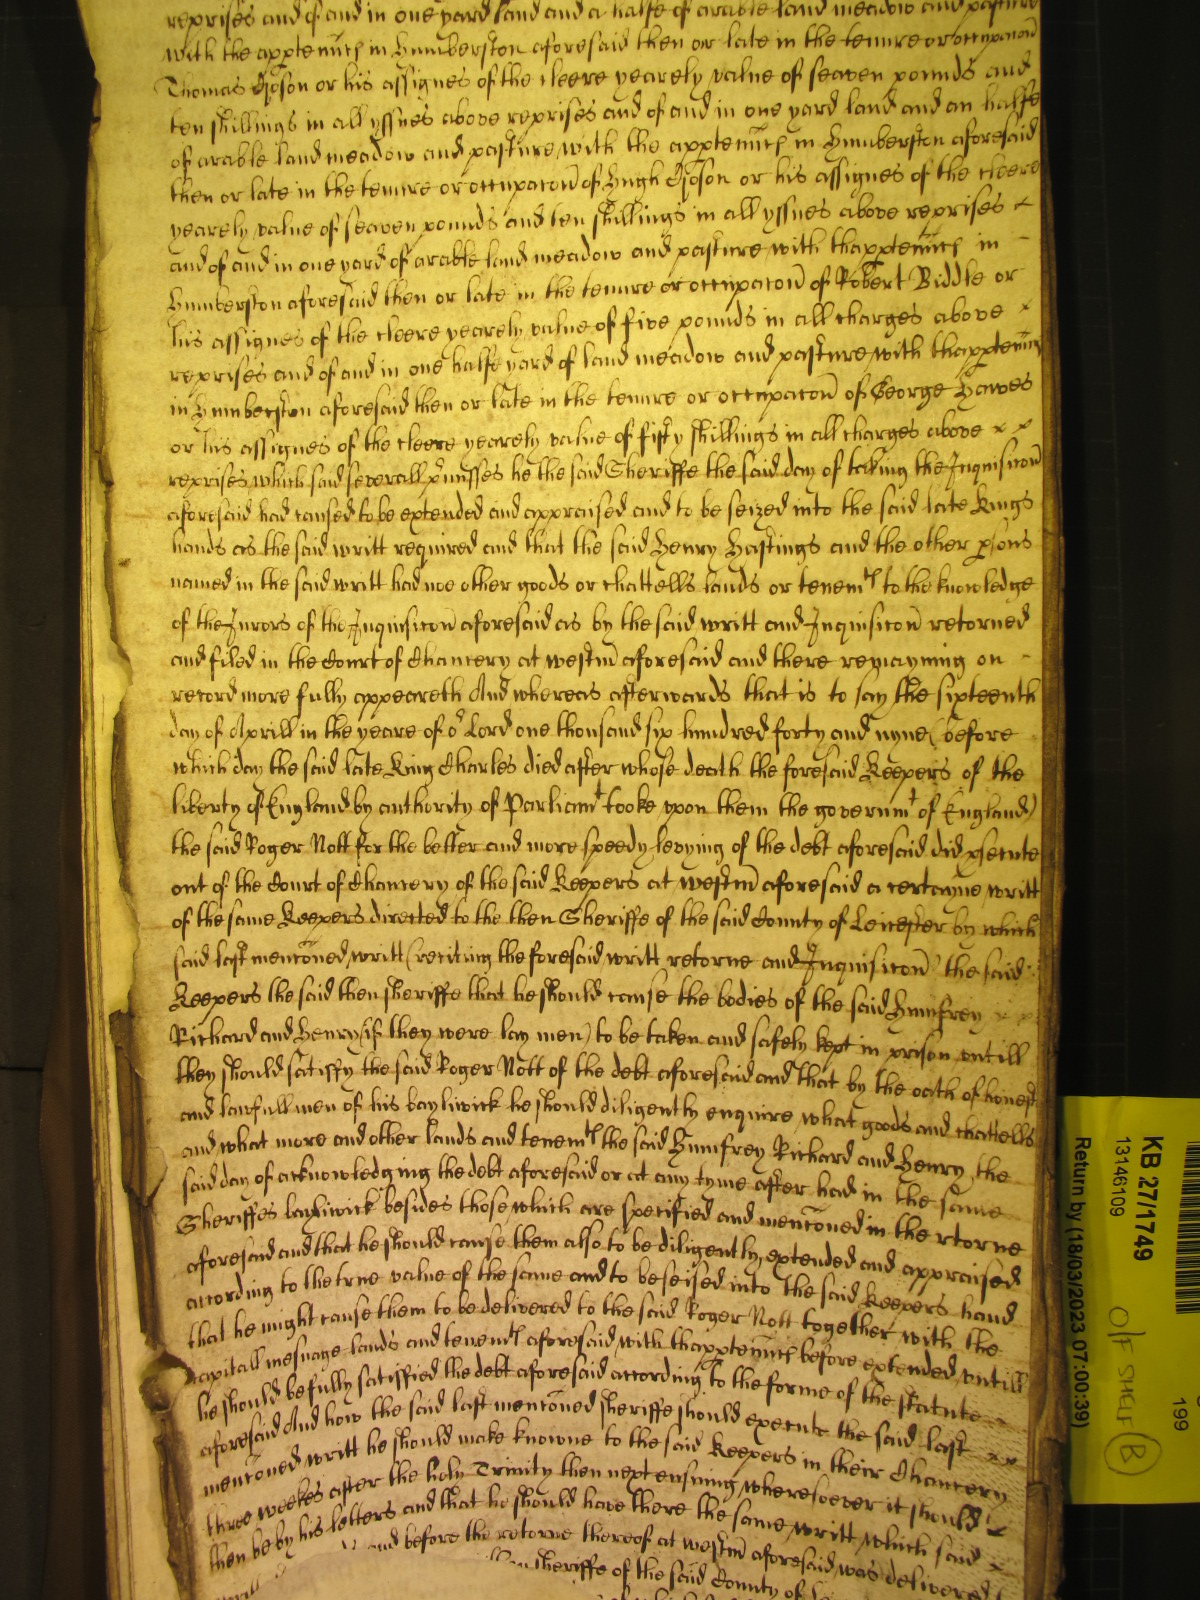 reprises and of and in one yard land and a halfe of arable land meadow and pasture
with the apptenñces in Humberston aforesaid then or late in the tenure or occupacoñ
Thomas Goson or his assignes of the cleere yearely value of seaven pounds and
ten shillings in all yssues above reprises and of and in one yard land and an halfe
of arable land meadow and pasture with the apptenñces in Humberston aforesaid
then or late in the tenure or occupacoñ of Hugh Goson or his assignes of the cleere
yearely value of seaven pounds and ten shillings in all yssues above reprises
and of and in one yard of arable land meadow and pasture with thapptenñces in
Humberston aforesaid then or late in the tenure or occupacoñ of Robert Biddle or
his assignes of the cleere yearely value of five pounds in all charges above
reprises and of and in one halfe yard of land meadow and pasture with thapptenñ
in Humberston aforesaid then or late in the tenure or occupacoñ of George Hawes
or his assignes of the cleere yearely value of fifty shillings in all charges above
reprises which said severall p̄misses he the said Sheriffe the said day of taking the Inquisicoñ
aforesaid had caused to be extended and appraised and to be seized into the said late Kings
hands as the said writt required and that the said Henry Hastings and the other p̱sons
named in the said writt had noe other goods or chattells lands or tenemts to the knowledge
of the Jurors of the Inquisicoñ aforesaid as by the said writt and Inquisicoñ retorned
and filed in the Court of Chancery at Westm̃ aforesaid and there remayning on
record more fully appeareth And whereas afterwards that is to say the sixteenth
day of Aprill in the yeare of or Lord one thousand six hundred forty and nyne (before
which day the said late King Charles died after whose death the foresaid Keepers of the
liberty of England by authority of Parliamt tooke upon them the governmt of England)
the said Roger Nott for the better and more speedy levying of the debt aforesaid did p̱secute
out of the Court of Chancery of the said Keepers at Westm̃ aforesaid a certayne writt
of the same Keepers directed to the then Sheriffe of the said County of Leicester by which
said last mencõned writt (reciting the foresaid writt retorne and Inquisicoñ) the said
Keepers the said then sheriffe that he should cause the bodies of the said Humfrey
Richard and Henry (if they were lay men) to be taken and safely kept in prison untill
they should satisfy the said Roger Nott of the debt aforesaid and that by the oath of honest
and lawfull men of his bayliwick he should diligently enquire what goods and chattells
and what more and other lands and tenemts the said Humfrey Richard and Henry the
said day of acknowledging the debt aforesaid or at any tyme after had in the same
Sheriffes bayliwick besides those which are specified and mencõned in the rtorne
aforesaid and that he should cause them also to be diligently extended and appraised
according to the true value of the same and to be seised into the said Keepers hand
that he might cause them to be delivered to the said Roger Nott together with the
capitall mesuage lands and tenemts aforesaid with thapptenñces before extended untill
he should be fully satisfied the debt aforesaid according to the forme of the statute
aforesaid And how the said last mencõned sheriffe should execute the said last
mencõned writt he should make knowne to the said Keepers in their Chancery
three weekes after the holy Trinity then next ensuing wheresoever it should
then be by his letters and that he should have there the same writt which said
and before the retorne thereof at Westm̃ aforesaid was delivered
sheriffe of the said County of
KB 27/1749
13146109
Return by (18/03/2023 07:00:39)
199
B